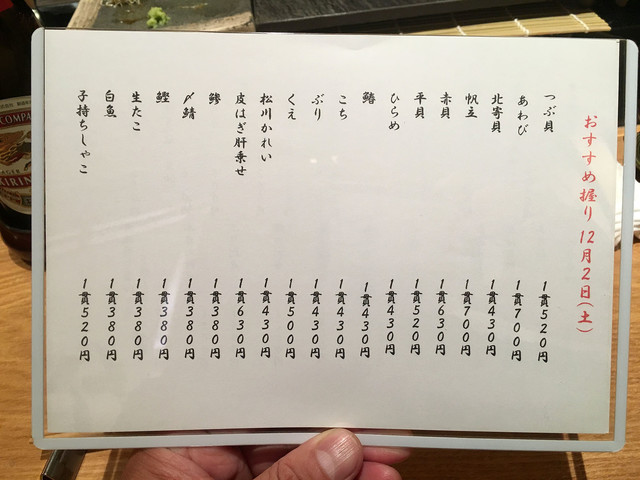 おすすめ握り 12月2日(土)
つぶ貝 1貫520円
あわび 1貫700円
北寄貝 1貫430円
帆立 1貫700円
赤貝 1貫630円
平貝 1貫520円
ひらめ 1貫430円
鰆 1貫430円
こち 1貫430円
ぶり 1貫430円
くえ 1貫500円
松川かれい 1貫430円
皮はぎ肝乗せ 1貫630円
鯵 1貫380円
〆鯖 1貫380円
鰹 1貫380円
生たこ 1貫380円
白魚 1貫380円
子持ちしゃこ 1貫520円
COMPA
KIRIN